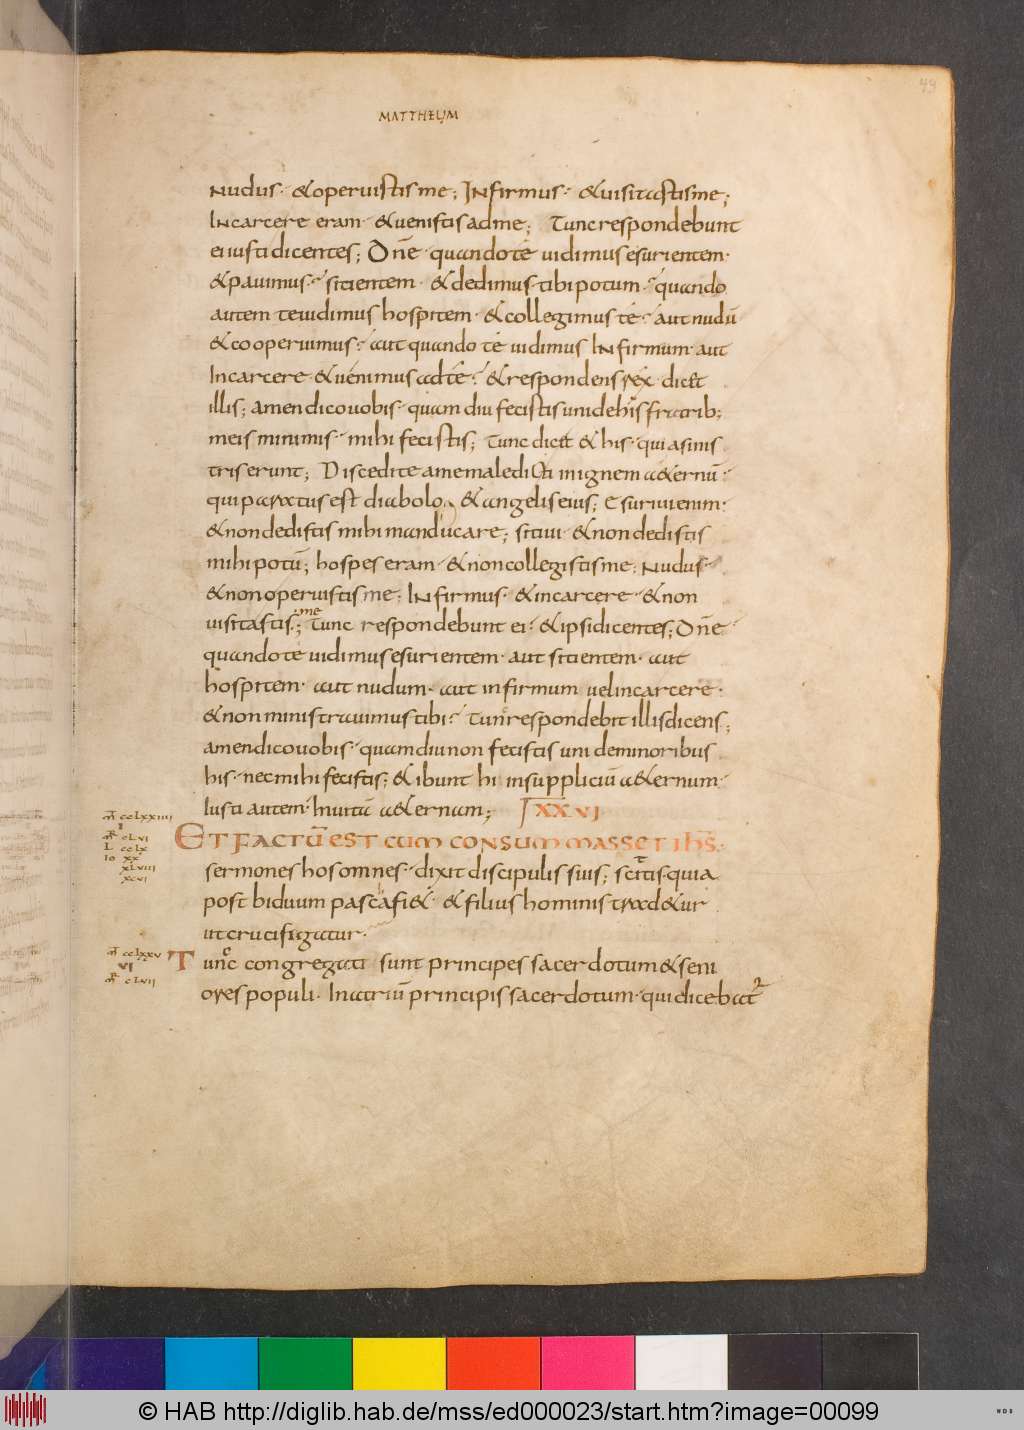 49
MATTHEUM
Nudus · & operuistis me; Infirmus · & uisitastis me;
In carcere eram · & uenistis ad me; Tunc respondebunt
ei iusti dicentes; Dn̄e · quando te uidimus esurientem ·
& pauimus · sitientem · & dedimus tibi potum · quando
autem te uidimus hospitem · & collegimus te · aut nudū
& cooperuimus · aut quando te uidimus Infirmum · aut
In carcere · & uenimus ad te · & respondens rex dicet
illis; amen dico uobis · quam diu fecistis uni de his fratrib;
meis minimis · mihi fecistis; Tunc dicet & his · qui a sinis
tris erunt; Discedite a me maledicti in ignem aeternū ·
qui paratus est diabolo & angelis eius; Esuriui enim ·
& non dedistis mihi manducare; sitiui · & non dedistis
mihi potū; hospes eram · & non collegistis me; Nudus ·
& non operuistis me; Infirmus · & in carcere · & non
me
uisitastis; Tunc respondebunt ei · & ipsi dicentes; Dn̄e
quando te uidimus esurientem · aut sitientem · aut
hospitem · aut nudum · aut infirmum uel in carcere ·
& non ministrauimus tibi · Tunc respondebit illis dicens;
amen dico uobis · quamdiu non fecistis uni de minoribus
his · nec mihi fecistis; & ibunt hi in suppliciū aeternum ·
Iusti autem · In uitā aeternam; LXXVI
ā cclxxiiii
I
ET FACTŪ EST CUM CONSUMMASSET IHS̄ ·
m̄ clvi
L cclx
Io xx
sermones hos omnes · dixit discipulis suis; scitis quia
xlviii
xcvi
post biduum pascha fi& · & filius hominis trad&ur
ut crucifigatur ·
m̄ cclxxv
Tunc congregati sunt principes sacerdotum & seni
VI
m̄ clvii
ores populi · In atriū principis sacerdotum · qui dicebat̄
© HAB http://diglib.hab.de/mss/ed000023/start.htm?image=00099
WDB